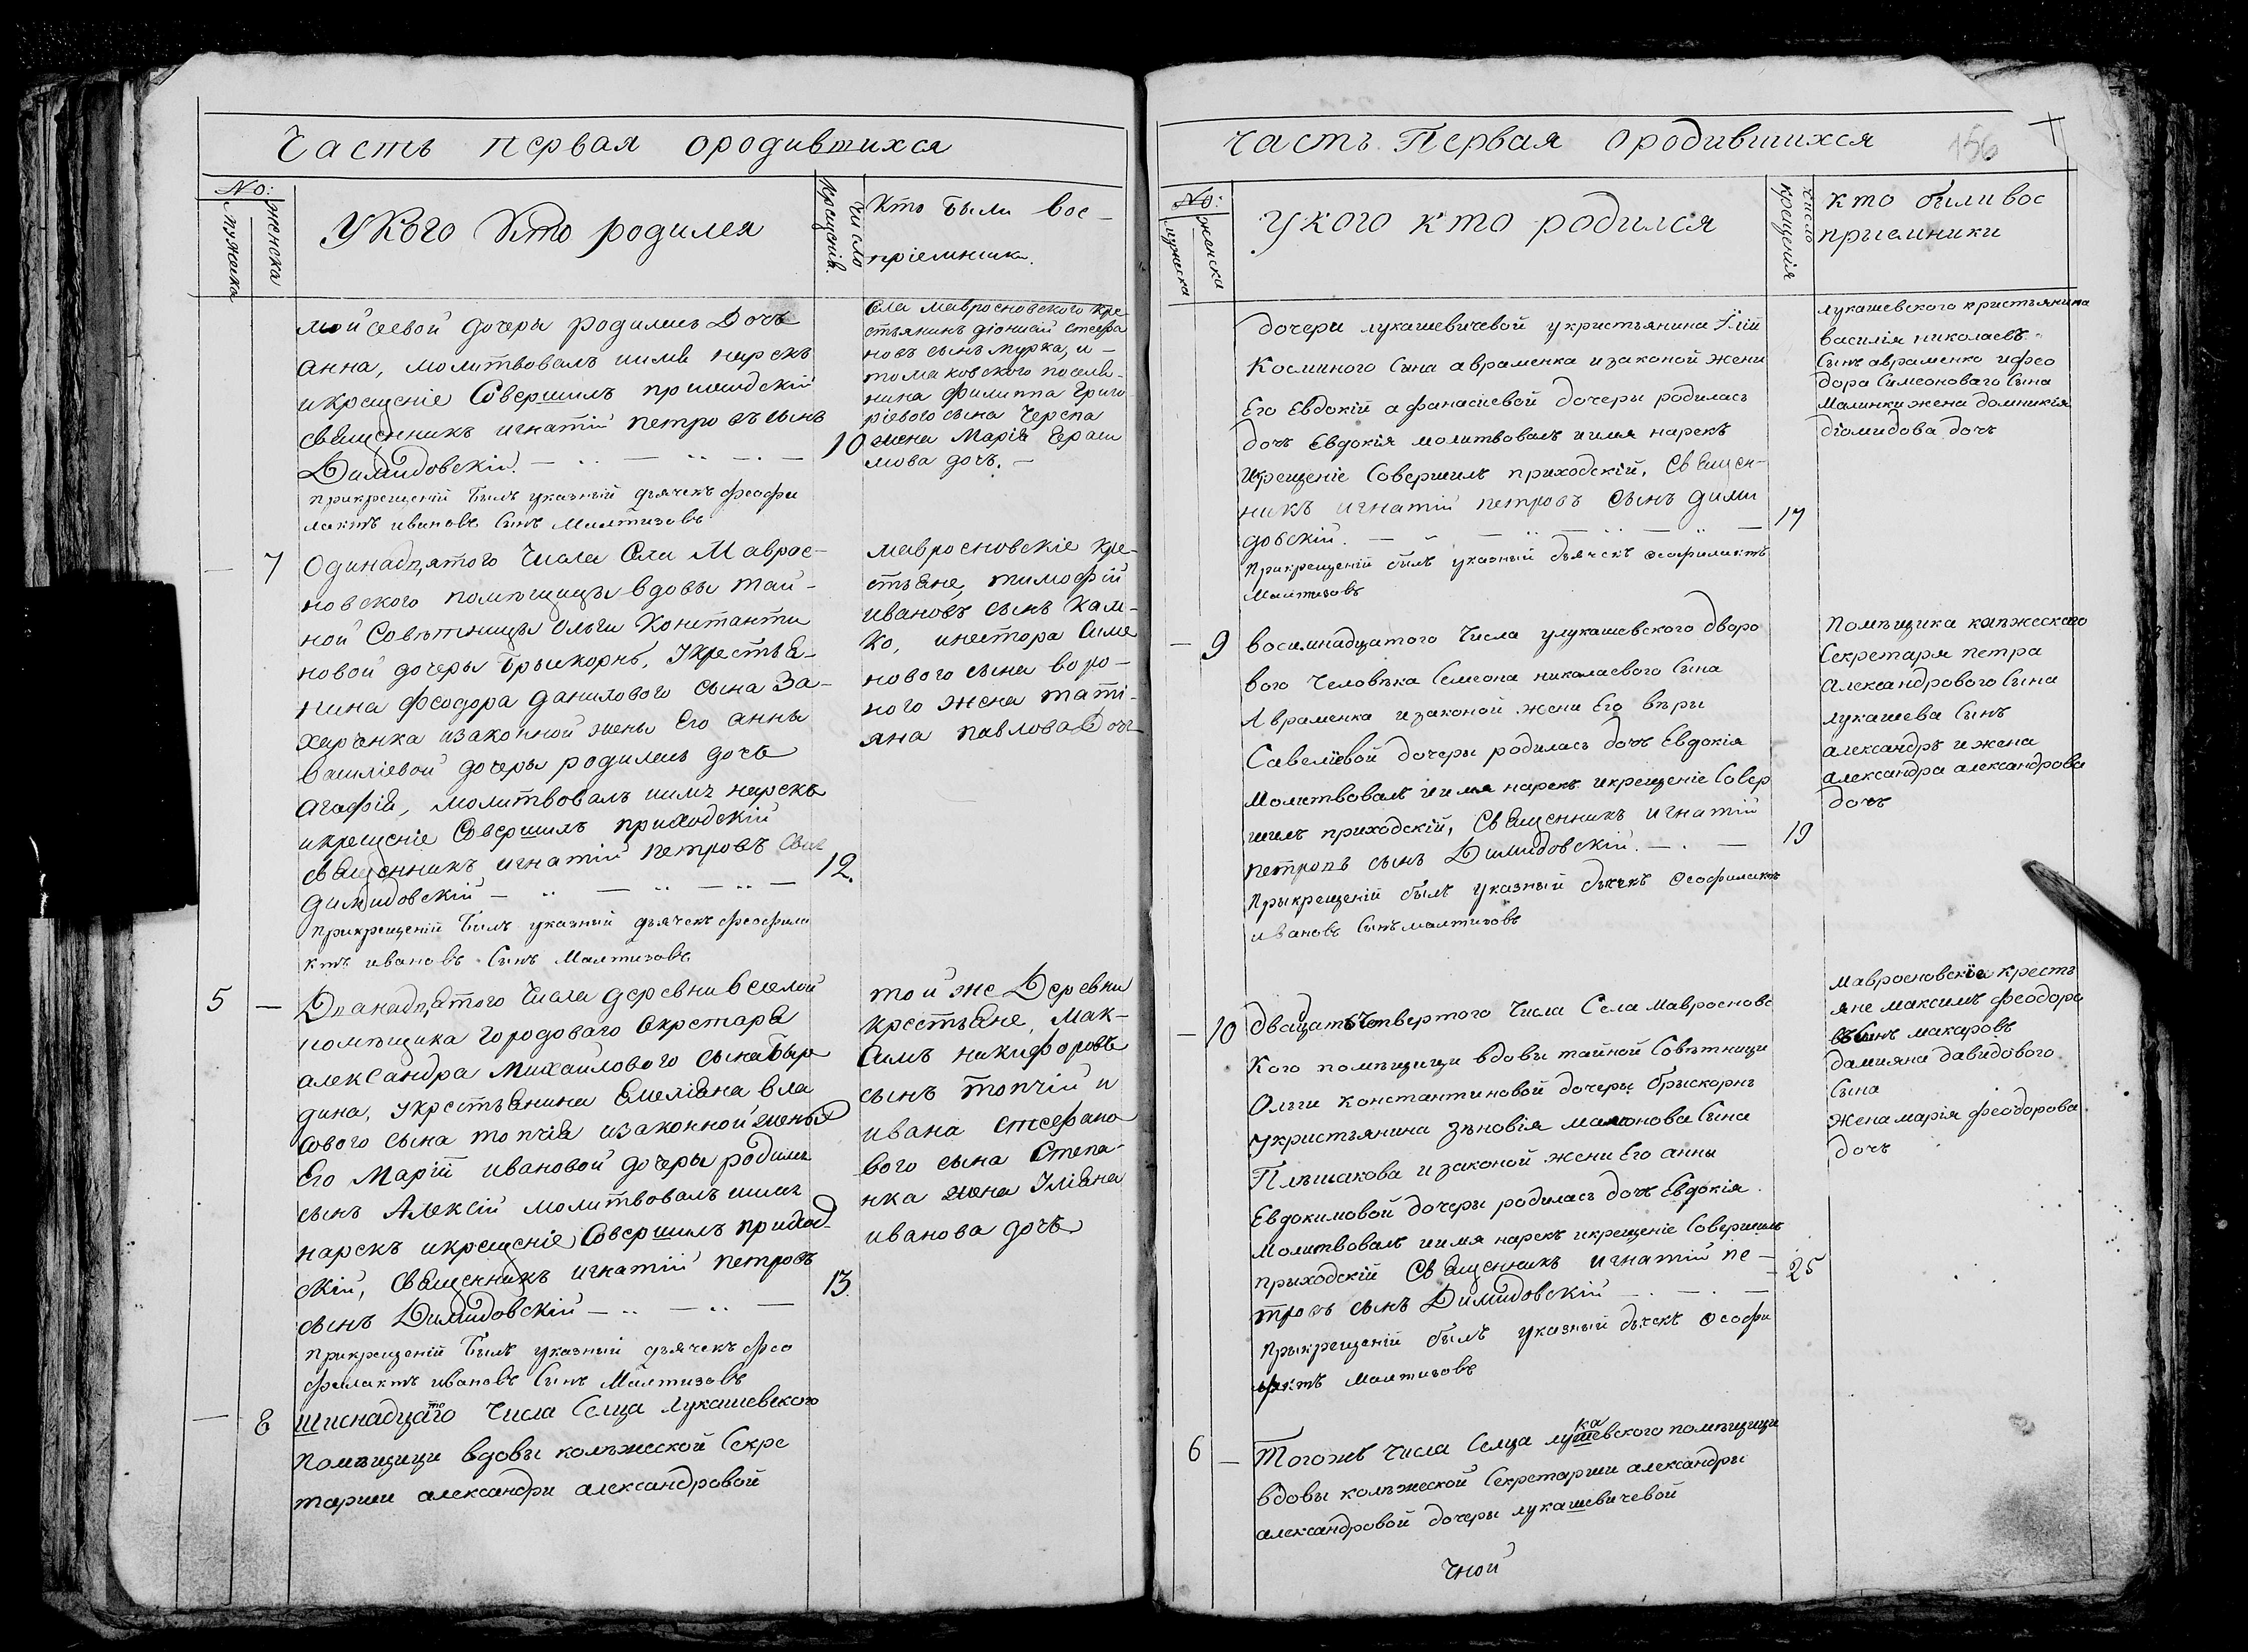 Часть первая ородившихся
No:
мужеска
женска
Укого Кто родился
Число
крещенія.
Кто были вос-
пріемники.
мойсеевой дочеры родилась Дочь
анна, молитвовалъ иимя нарекъ
икрещеніе Совершилъ приходскій
священникъ игнатій петровъ сынъ
Димидовскій.
10
прикрещеній былъ указный дьячекъ феофи
лактъ ивановъ Сынъ Малтизовъ
Села мавросновского кре
стьянинъ діонисій стефа
новъ сынъ мурка, и-
томаковского поселя-
нина филиппа Григо
ріевого сына Черепа
жена Марія Гераси
мова дочь.
7
Одинадцятого Числа Села Маврос-
новского помѣщицы вдовы тай-
ной Совѣтницы Ольги Константи
новой дочеры Брыскорнъ, Укрестья-
нина феодора данилового сына За-
харченка изаконной жены Его анны
василіевой дочеры родилась дочь
агафія, молитвовалъ иимя нарекъ
икрещеніе Совершилъ приходскій
священникъ игнатій петровъ сынъ
димидовскій
12.
прикрещеній былъ указный дьячекъ феофила
ктъ ивановъ Сынъ Малтизовъ
мавросновскіе кре-
стьяне, тимофій
ивановъ сынъ Кал-
ко, инестора Симе
нового сына воро-
ного жена таті-
яна павлова Дочь
5
Дванадцятого Числа деревни веселой
помѣщика городоваго Секретаря
александра Михайлового сына Быр
дина, Укрестьянина Емеліяна вла
сового сына топчія изаконной жены
Его Марій ивановой дочеры родился
сынъ Алексій молитвовалъ иимя
нарекъ икрещеніе Совершилъ приход-
скій, священникъ игнатій петровъ
сынъ Димидовскій
13.
прикрещеній былъ указный дьячекъ фео
филактъ ивановъ Сынъ Малтизовъ
той же Деревни
крестьяне, Мак-
симъ никифоровъ
сынъ топчій и
ивана стефано
вого сына Степа-
нка жена Уліяна
иванова дочь
8
шиснадцатого Числа Селца лукашевского
помѣщици вдовы колѣжеской Секре
тарши александри александровой
Часть Первая ородившихся
156
No:
мужеска
женска
укого кто родился
число
крещенія
кто били вос
приемники
дочери лукашевичевой укристьянина Ілій
Косминого Сына авраменка изаконой жени
Его Евдокій афанасіевой дочеры родилась
дочь Евдокія молитвовалъ иимя нарекъ
Икрещеніе Совершилъ приходскій, Священ-
никъ игнатій петровъ сынъ дими
довскій.
17
Прикрещеній былъ указный дьячекъ феофилактъ
Малтизовъ
лукашевского кристьянина
василія николаевъ
Сынъ авраменко ифео
дора Симеоноваго Сына
Малинки жена домникія
діомидова дочь
9
восимнадцатого Числа улукашевского дворо
вого Человѣка Семеона николаевого Сына
Авраменка изаконой жени Его вѣри
Савеліевой дочеры родилась дочь Евдокія
Молитвовалъ иимя нарекъ икрещеніе Совер
шилъ приходскій, Священникъ игнатій
петровъ сынъ Димидовскій.
19
Прыкрещеній былъ указный дьячекъ феофилактъ
ивановъ Сынъ малтизовъ
Помѣщика колѣжеского
Секретаря петра
Александрового Сына
лукашева Сынъ
александръ ижена
александра александрова
дочь
10
двадцать четвертого Числа Села мавросновс
Кого помѣщици вдови тайной Совѣтници
Ольги Константиновой дочеры брыскорнъ
Укристьянина зѣновія мамонова Сина
Плѣшакова изаконой жени Его анны
Евдокимовой дочери родилась дочь Евдокія
Молитвовалъ иимя нарекъ икрещеніе Совершилъ
прыходскій Священникъ игнатій пе-
тровъ сынъ Димидовскій
25
Прыкрещеній былъ указный дьячекъ феофи
лактъ Малтизовъ
мавросновскіе кресть
яне максимъ феодоро
въ Сынъ макаровъ
дамияна давидового
Сына
Жена марія феодорова
дочь
6
Тогожъ Числа Селца лукашевского помѣщици
вдовы колѣжеской Секретарши александры
александровой дочеры лукашевичевой
Чной